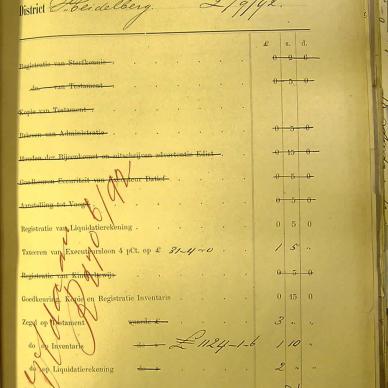 District Heidelberg. 2/9/92.
£ s. d.
Registratie van Sterfkennis 0 2 0
do. van Testament 0 5 0
Kopie van Testament
Brieven van Administratie 0 5 0
Houden der Bijeenkomst en uitschrijven advertentie Edict 0 15 0
Goedkeuren Securiteit van Executeur Datief 0 5 0
Aanstelling tot Voogd 0 5 0
Registratie van Liquidatierekening 0 5 0
Taxeeren van Executeursloon 4 pCt. op £ 31-4-0 1 5 "
Registratie van Kinderbewijs 0 5 0
Goedkeuring, Kopie en Registratie Inventaris 0 15 0
Zegel op Testament waarde £ 3 " "
do op Inventaris do £1124-1-6 1 10 "
do op Liquidatierekening do 2 " "